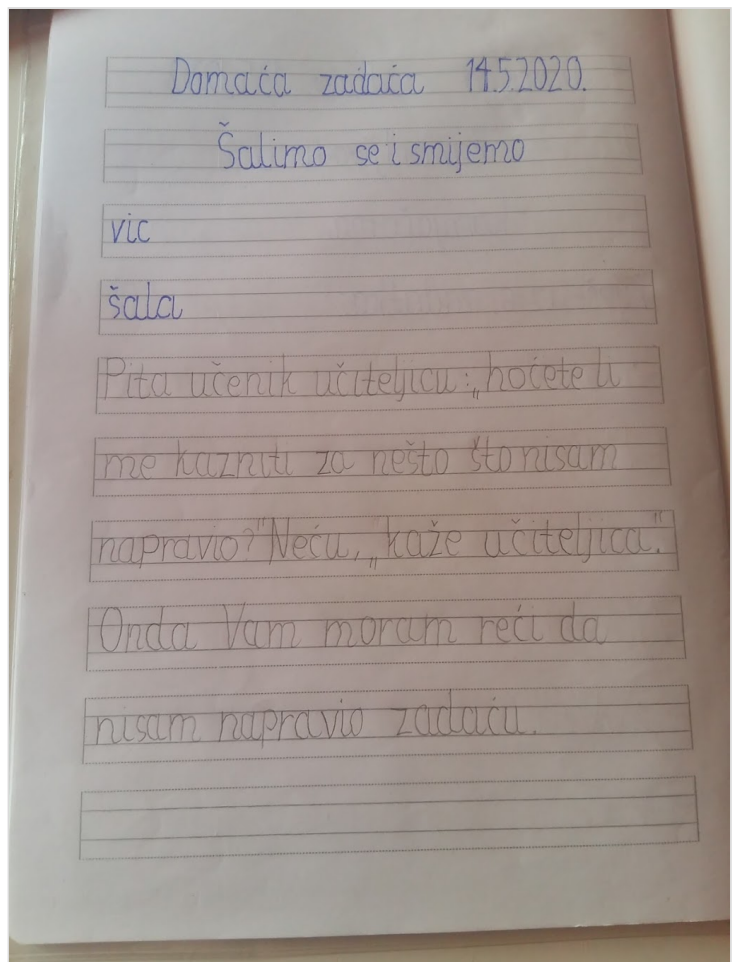 Domaća zadaća 14.5.2020.
Šalimo se i smijemo
vic
šala
Pita učenik učiteljicu:„hoćete li
me kazniti za nešto što nisam
napravio?"Neću,„kaže učiteljica".
Onda Vam moram reći da
nisam napravio zadaću.